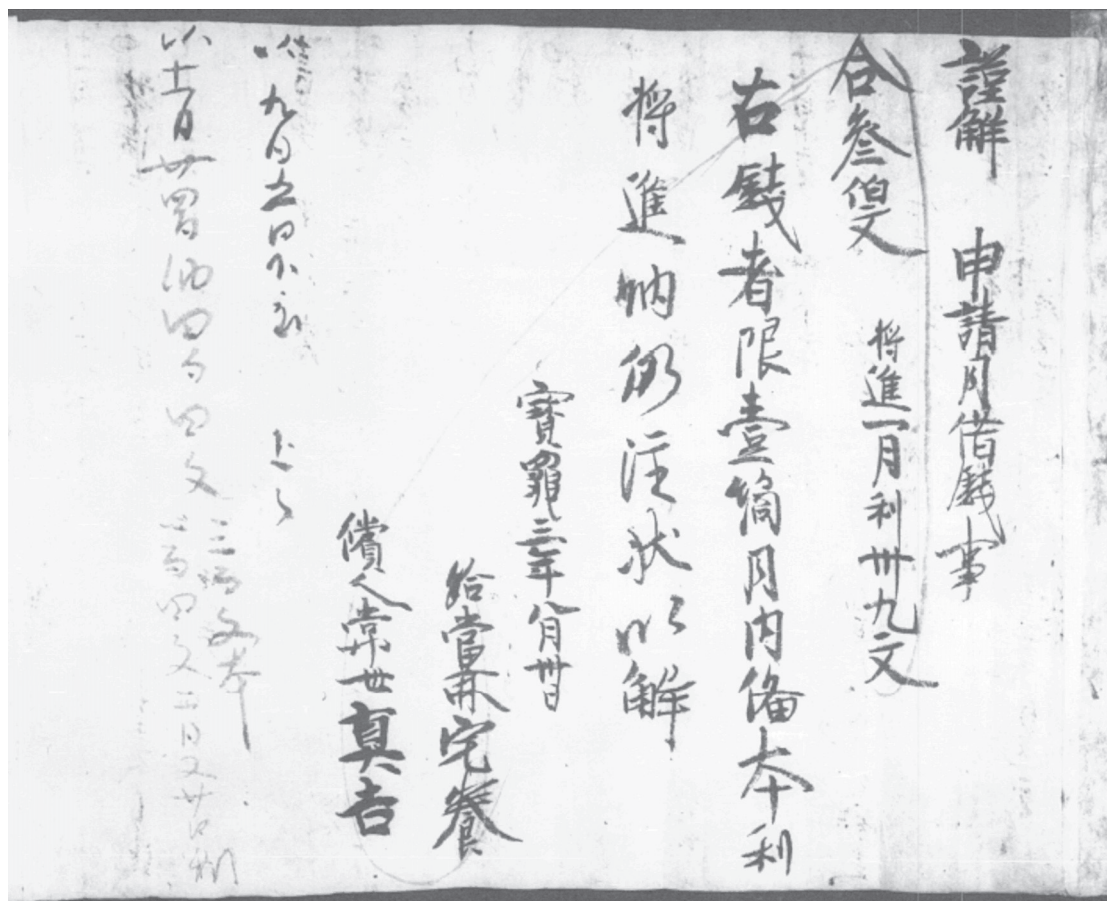 謹解　申請月借錢事
合參佰文　将進一月利卅九文
右錢者限壹箇月内備本利
将進納仍注状以解
寶龜三年八月卅日
給當麻宅養
償人常世真吉
九月五日
以十一月廿四日納四百四文
三百文本
百四文二月又廿日利